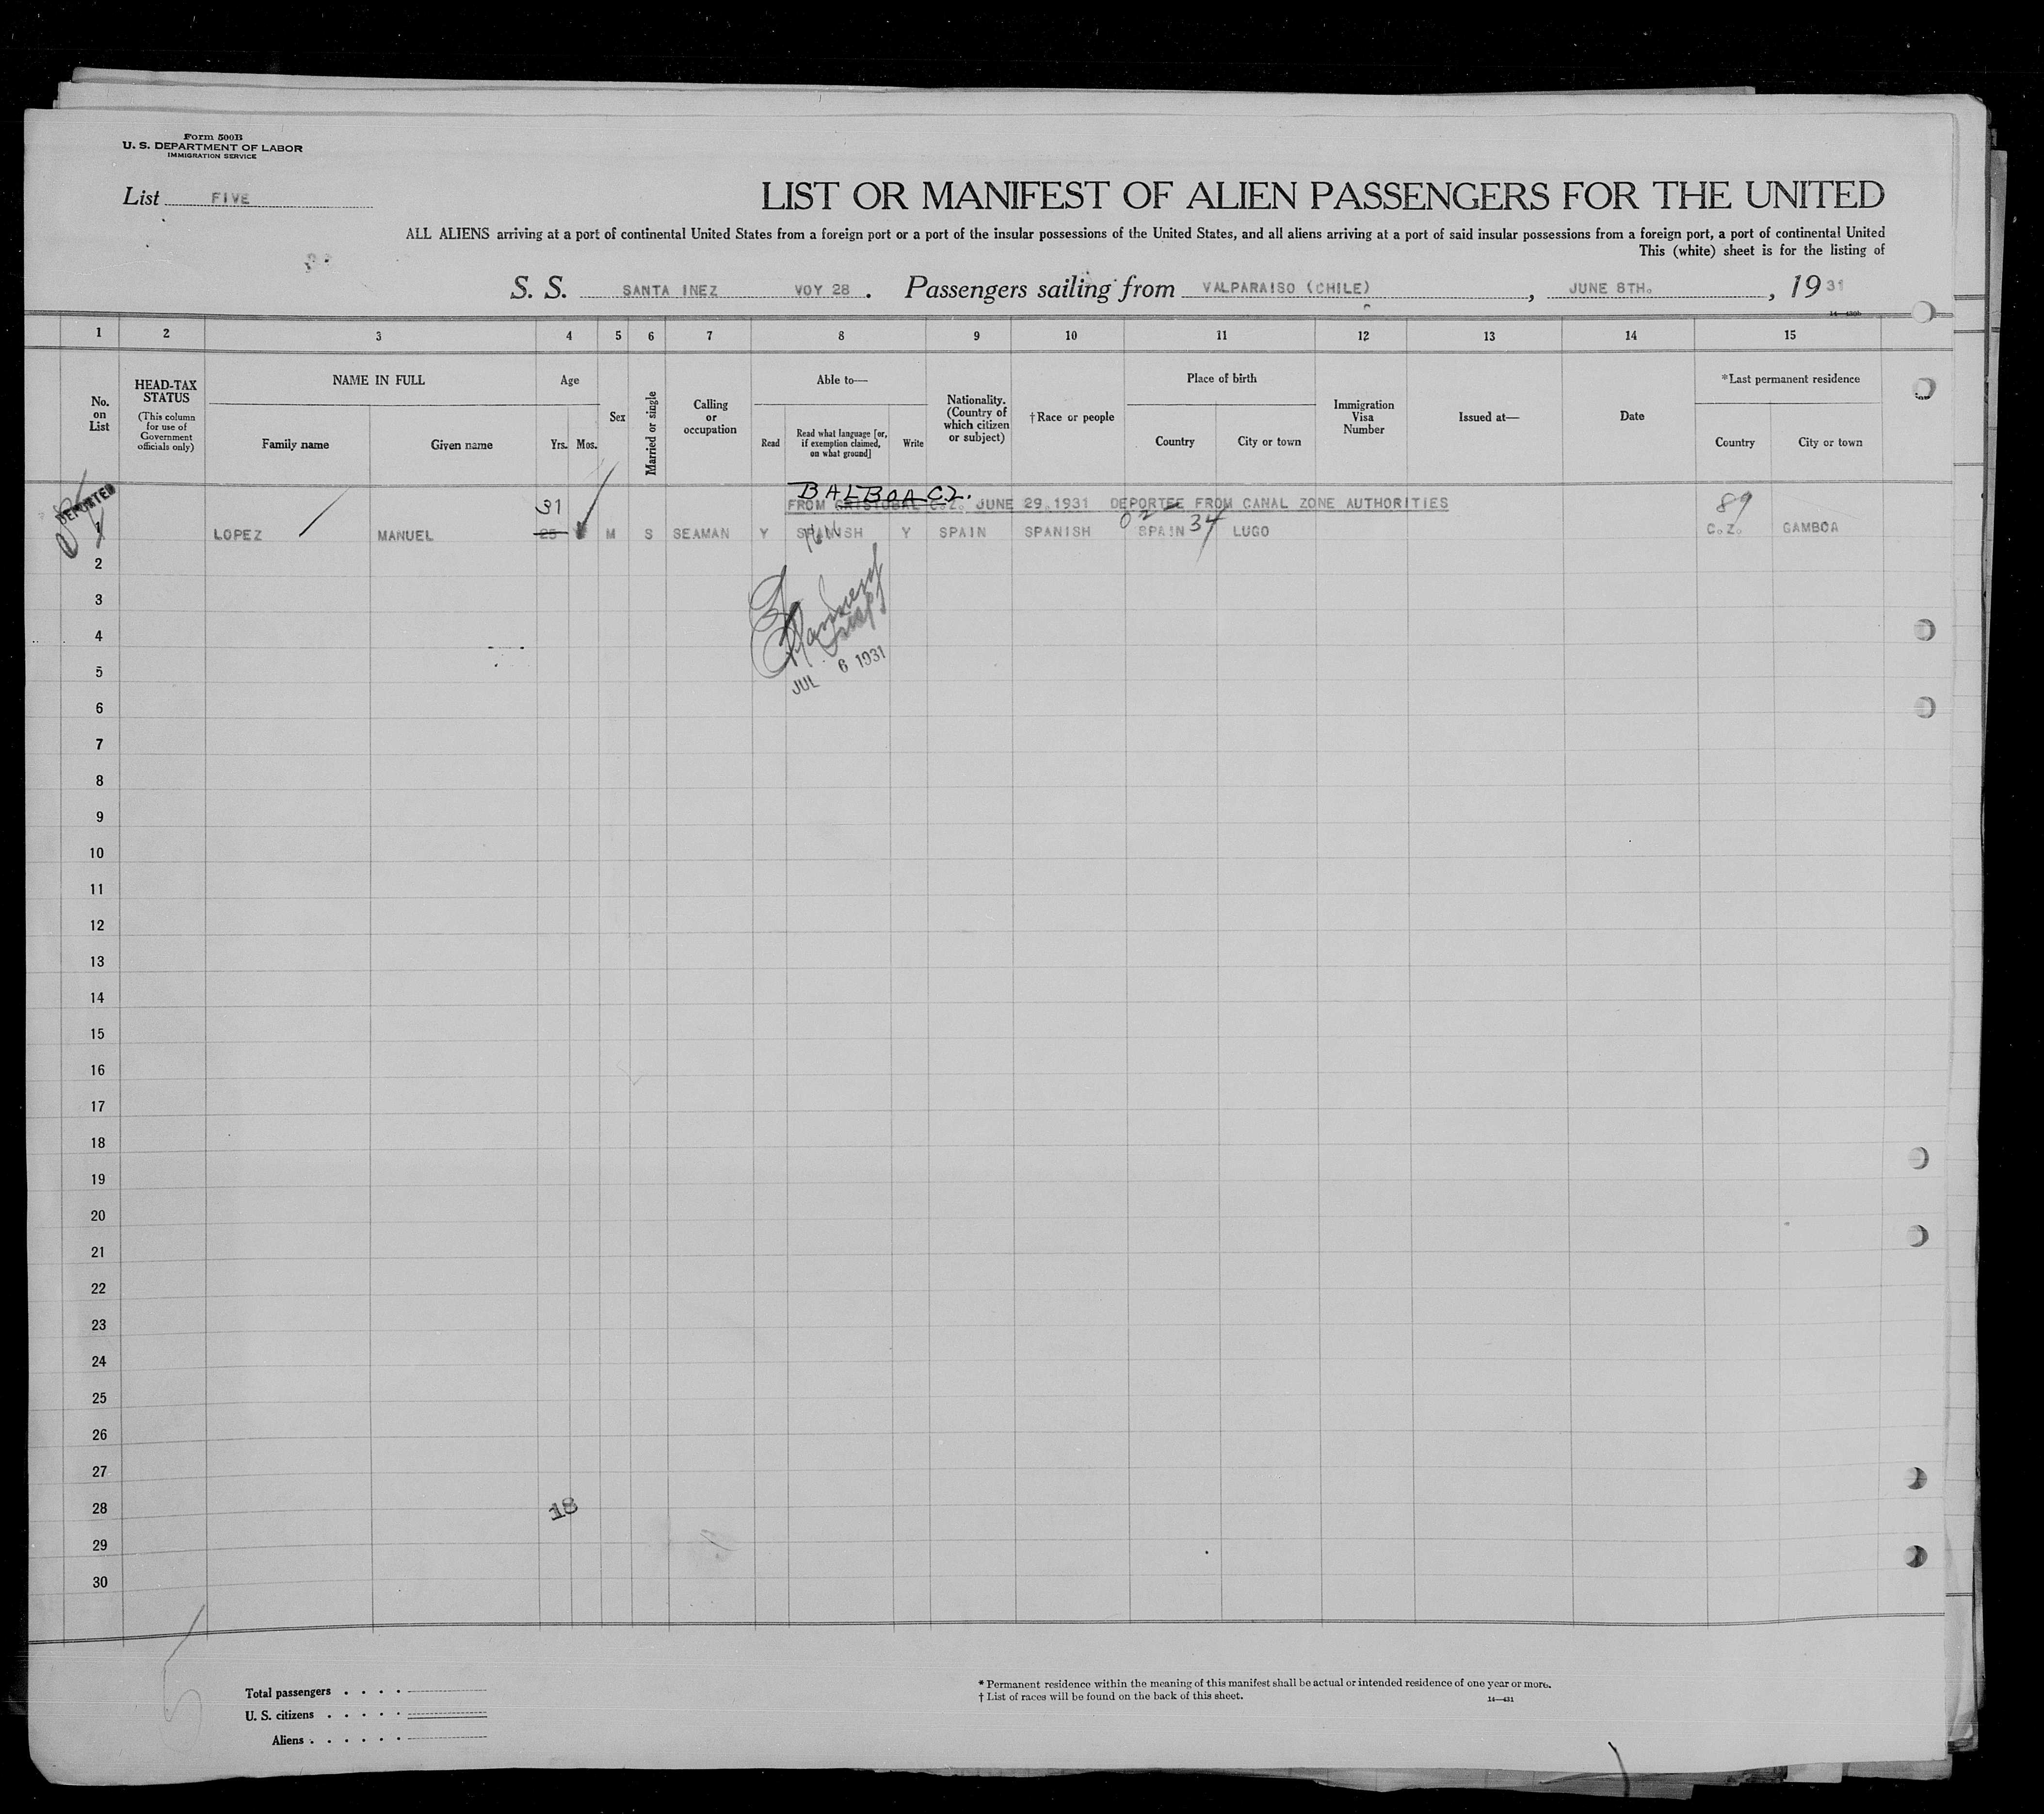 Form 500B
U. S. DEPARTMENT OF LABOR
IMMIGRATION SERVICE
List FIVE
LIST OR MANIFEST OF ALIEN PASSENGERS FOR THE UNITED
ALL ALIENS arriving at a port of continental United States from a foreign port or a port of the insular possessions of the United States, and all aliens arriving at a port of said insular possessions from a foreign port, a port of continental United
This (white) sheet is for the listing of
S. S. SANTA INEZ VOY 28 . Passengers sailing from VALPARAISO (CHILE) , JUNE 8TH. , 1931
1 2 3 4 5 6 7 8 9 10 11 12 13 14 15
No. on List
HEAD-TAX STATUS
(This column for use of Government officials only)
NAME IN FULL
Family name Given name
Age
Yrs. Mos.
Sex
Married or single
Calling or occupation
Able to—
Read
Read what language [or, if exemption claimed, on what ground]
Write
Nationality. (Country of which citizen or subject)
†Race or people
Place of birth
Country City or town
Immigration Visa Number
Issued at—
Date
*Last permanent residence
Country City or town
DEPORTED
BALBOA C.Z.
FROM CRISTOBAL C.Z. JUNE 29.1931 DEPORTEE FROM CANAL ZONE AUTHORITIES
31 022 34 89
1 LOPEZ MANUEL 25 M S SEAMAN Y SPANISH Y SPAIN SPANISH SPAIN LUGO C.Z. GAMBOA
2
3
4
5
JUL 6 1931
6
7
8
9
10
11
12
13
14
15
16
17
18
19
20
21
22
23
24
25
26
27
28
18
29
30
Total passengers
U. S. citizens
Aliens
* Permanent residence within the meaning of this manifest shall be actual or intended residence of one year or more.
† List of races will be found on the back of this sheet.
14—431